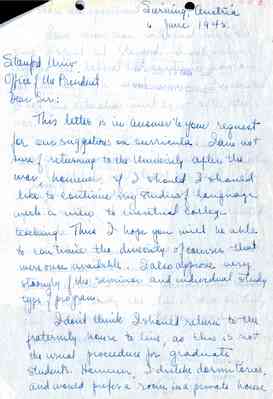 Austria
6 June 1945.
Stanford Univ.
Office of the President
Dear Sir:
This letter is in answer to your request
for our suggestions on curricula. I am not
sure of returning to the University after the
war, however, if I should I should
like to continue my study of language
with a view to eventual college
teaching. Thus I hope you will be able
to continue the diversity of courses that
were once available. I also approve very
strongly of the seminar and individual study
type of program.
I don't think I should return to the
fraternity house to live, as this is not
the usual procedure for graduate
students. However, I dislike dormitories,
and would prefer a room in a private house